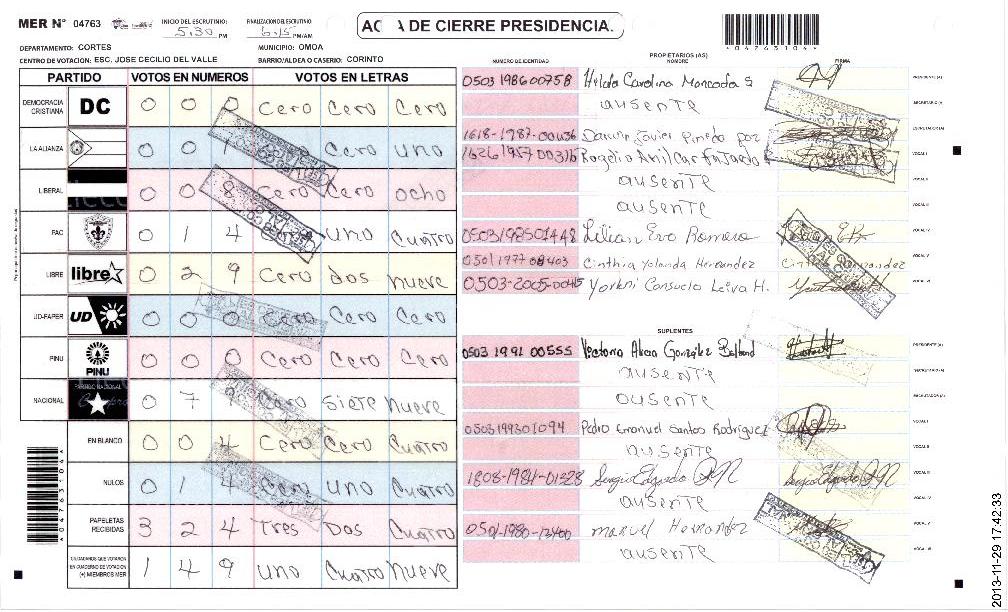 MER N° 04763
INICIO DEL ESCRUTINIO
5:30 PM
FINALIZACION DEL ESCRUTINIO
6:15 PM/AM
ACTA DE CIERRE PRESIDENCIA.
*04763104*
DEPARTAMENTO: CORTES
MUNICIPIO: OMOA
CENTRO DE VOTACION: ESC. JOSE CECILIO DEL VALLE
BARRIO/ALDEA O CASERIO: CORINTO
PARTIDO VOTOS EN NUMEROS VOTOS EN LETRAS
DEMOCRACIA CRISTIANA DC 0 0 0 Cero Cero Cero
LA ALIANZA 0 0 1 Cero uno
LIBERAL 0 0 8 Cero Cero ocho
PAC 0 1 4 uno Cuatro
LIBRE libre 0 2 9 Cero dos nueve
UD-FAPER UD 0 0 0 Cero Cero Cero
PINU PINU 0 0 0 Cero Cero Cero
NACIONAL PARTIDO NACIONAL 0 7 9 Cero Siete nueve
EN BLANCO 0 0 4 Cero Cero Cuatro
NULOS 0 1 4 Cero uno Cuatro
PAPELETAS RECIBIDAS 3 2 4 Tres Dos Cuatro
CIUDADANOS QUE VOTARON EN CUADERNO DE VOTACION (+) MIEMBROS MER 1 4 9 uno Cuatro nueve
*04763104*
PROPIETARIOS (AS)
NUMERO DE IDENTIDAD NOMBRE FIRMA
0503 1986 00758 Hilda Carolina Moncada S PRESIDENTE (A)
ausente SECRETARIO (A)
1618-1987-00636 Darwin Javier Pineda ESCRUTADOR (A)
1626 1957 00316 Rogelio Amilcar Fajardo VOCAL I
ausente VOCAL II
ausente VOCAL III
0503198501448 Lilian Eva Romero VOCAL IV
0501 1977 08403 Cinthia Yolanda Hernandez VOCAL V
0503-2005-00415 Yorkni Consuelo Leiva H. VOCAL VI
SUPLENTES
0503 1991 00555 Victoria Alicia González PRESIDENTE (A)
ausente SECRETARIO (A)
ausente ESCRUTADOR (A)
0503199301094 Pedro Emanuel Santos Rodriguez VOCAL I
ausente VOCAL II
1808-1984-01528 Sergio Edgardo VOCAL III
ausente VOCAL IV
0501-1980-13400 manuel Hernandez VOCAL V
ausente VOCAL VI
2013-11-29 17:42:33